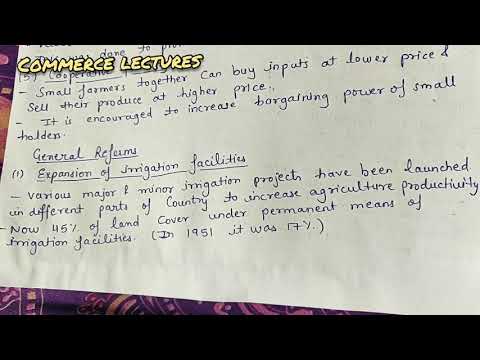 done to
COMMERCE LECTURES
(5) Cooperative
- Small farmers together can buy inputs at lower price &
Sell their produce at higher price.
- It is encouraged to increase bargaining power of small
holders.
General Reforms
(1) Expansion of irrigation facilities
- Various major & minor irrigation projects have been launched
in different parts of Country to increase agriculture productivity
- Now 45% of land Cover under permanent means of
irrigation facilities. (In 1951 it was 17%.)